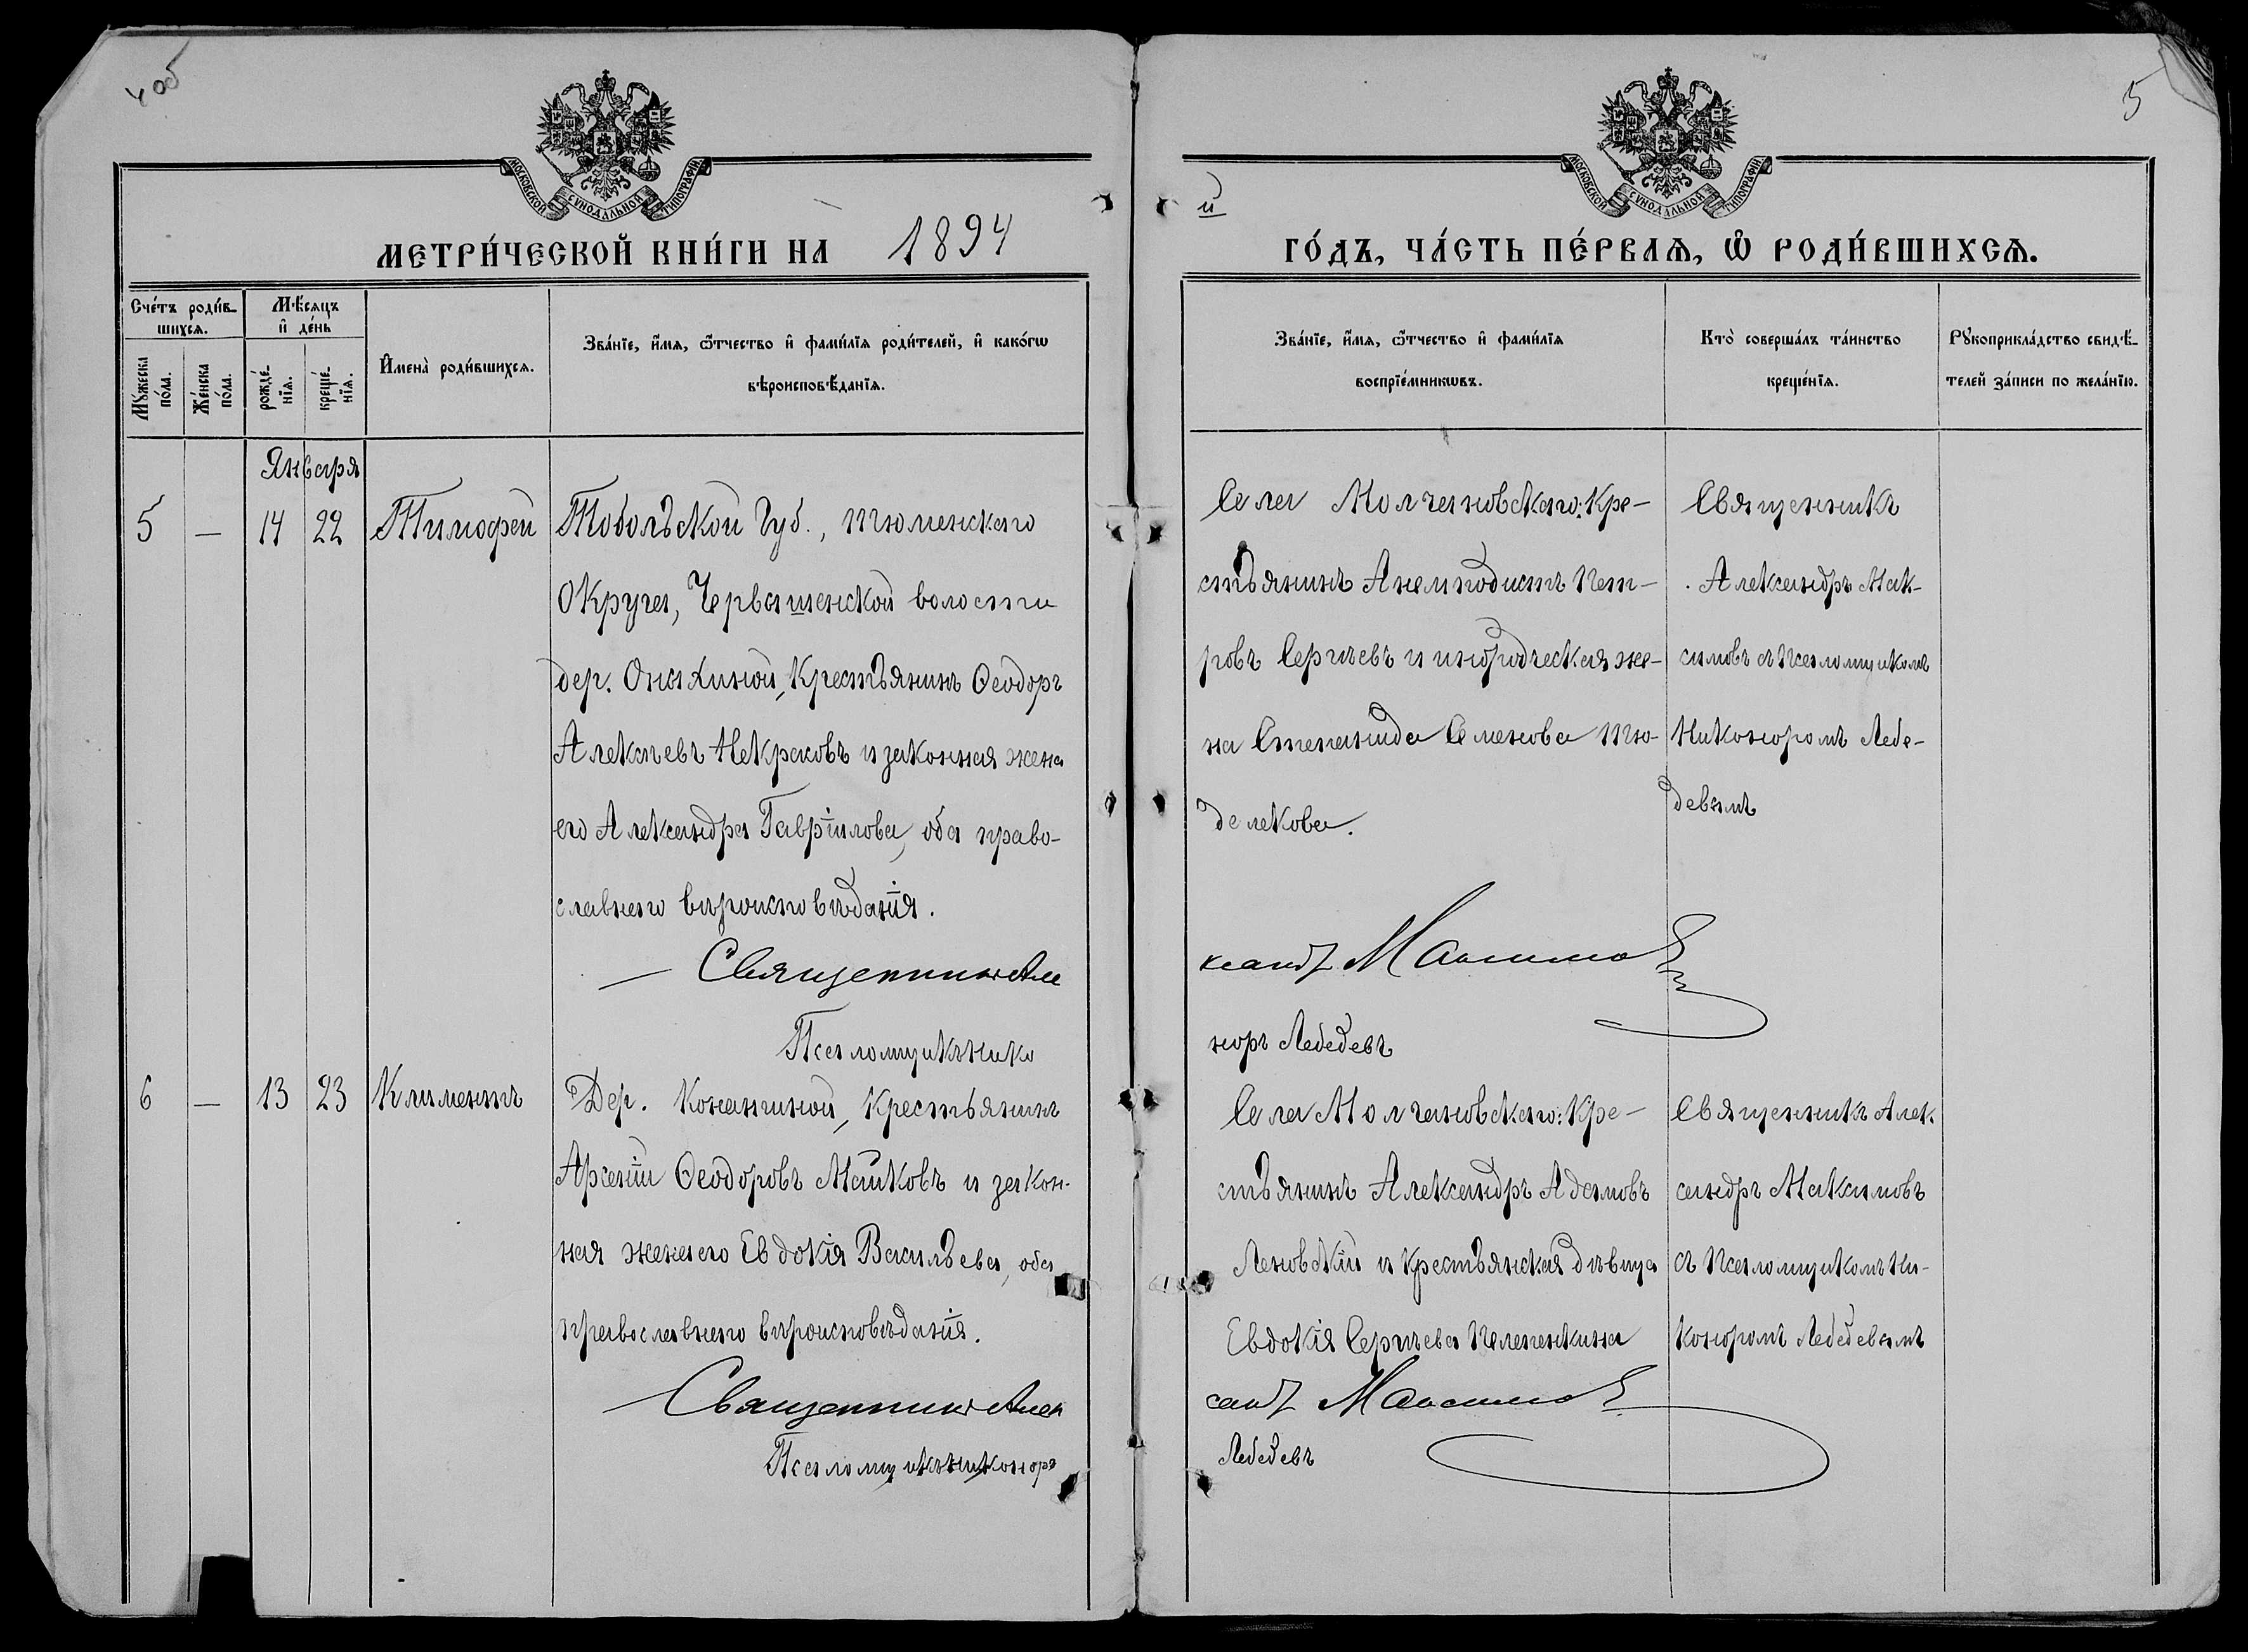 4 об
5
МОСКОВСКОЙ СѴНОДАЛЬНОЙ ТИПОГРАФІИ
МОСКОВСКОЙ СѴНОДАЛЬНОЙ ТИПОГРАФІИ
и
МЕТРИ́ЧЕСКОЙ КНИ́ГИ НА 1894
ГО́ДЪ, ЧА́СТЬ ПЕ́РВАѦ, Ѿ РОДИ́ВШИХСѦ.
Сче́тъ роди́в-
шихсѧ.
Мꙋ́жеска
по́ла.
Же́нска
по́ла.
Мѣ́сѧцъ
и҆ де́нь
рожде́-
нїѧ.
креще́-
нїѧ.
И҆мена̀ роди́вшихсѧ.
Зва́нїе, и҆́мѧ, ѻ҆́тчество и҆ фами́лїѧ роди́телей, и҆ како́гѡ
вѣроисповѣ́данїѧ.
Зва́нїе, и҆́мѧ, ѻ҆́тчество и҆ фами́лїѧ
воспрїе́мникѡвъ.
Кто̀ соверша́лъ та́инство
креще́нїѧ.
Рꙋкоприкла́дство свидѣ́-
телей за́писи по жела́нїю.
Января
5 — 14 22 Тимофей
Тобольской Губ., Тюменскаго
Округа, Червишевской волости
дер. Онохиной, Крестьянинъ Ѳеодоръ
Алексѣевъ Некрасовъ и законная жена
его Александра Гавріилова, оба право-
славнаго вѣроисповѣданія.
Священникъ Але
Псаломщикъ Нико
Села Молчановскаго: Кре-
стьянинъ Анемподистъ Пет-
ровъ Сергѣевъ и инородческая же-
на Степанида Семенова Тю-
делекова.
ксандръ Максимовъ
норъ Лебедевъ
Священникъ
Александръ Мак-
симовъ съ Псаломщикомъ
Никоноромъ Лебе-
девымъ
6 — 13 23 Климентъ
Дер. Кокшиной, Крестьянинъ
Арсеній Ѳеодоровъ Майковъ и закон-
ная жена его Евдокія Васильева, оба
православнаго вѣроисповѣданія.
Священникъ Алек
Псаломщикъ Никоноръ
Села Молчановскаго: Кре-
стьянинъ Александръ Адамовъ
Леновскій и крестьянская дѣвица
Евдокія Сергѣева Пелепенкина
сандръ Максимовъ
Лебедевъ
Священникъ Алек
сандръ Максимовъ
съ Псаломщикомъ Ни-
коноромъ Лебедевымъ